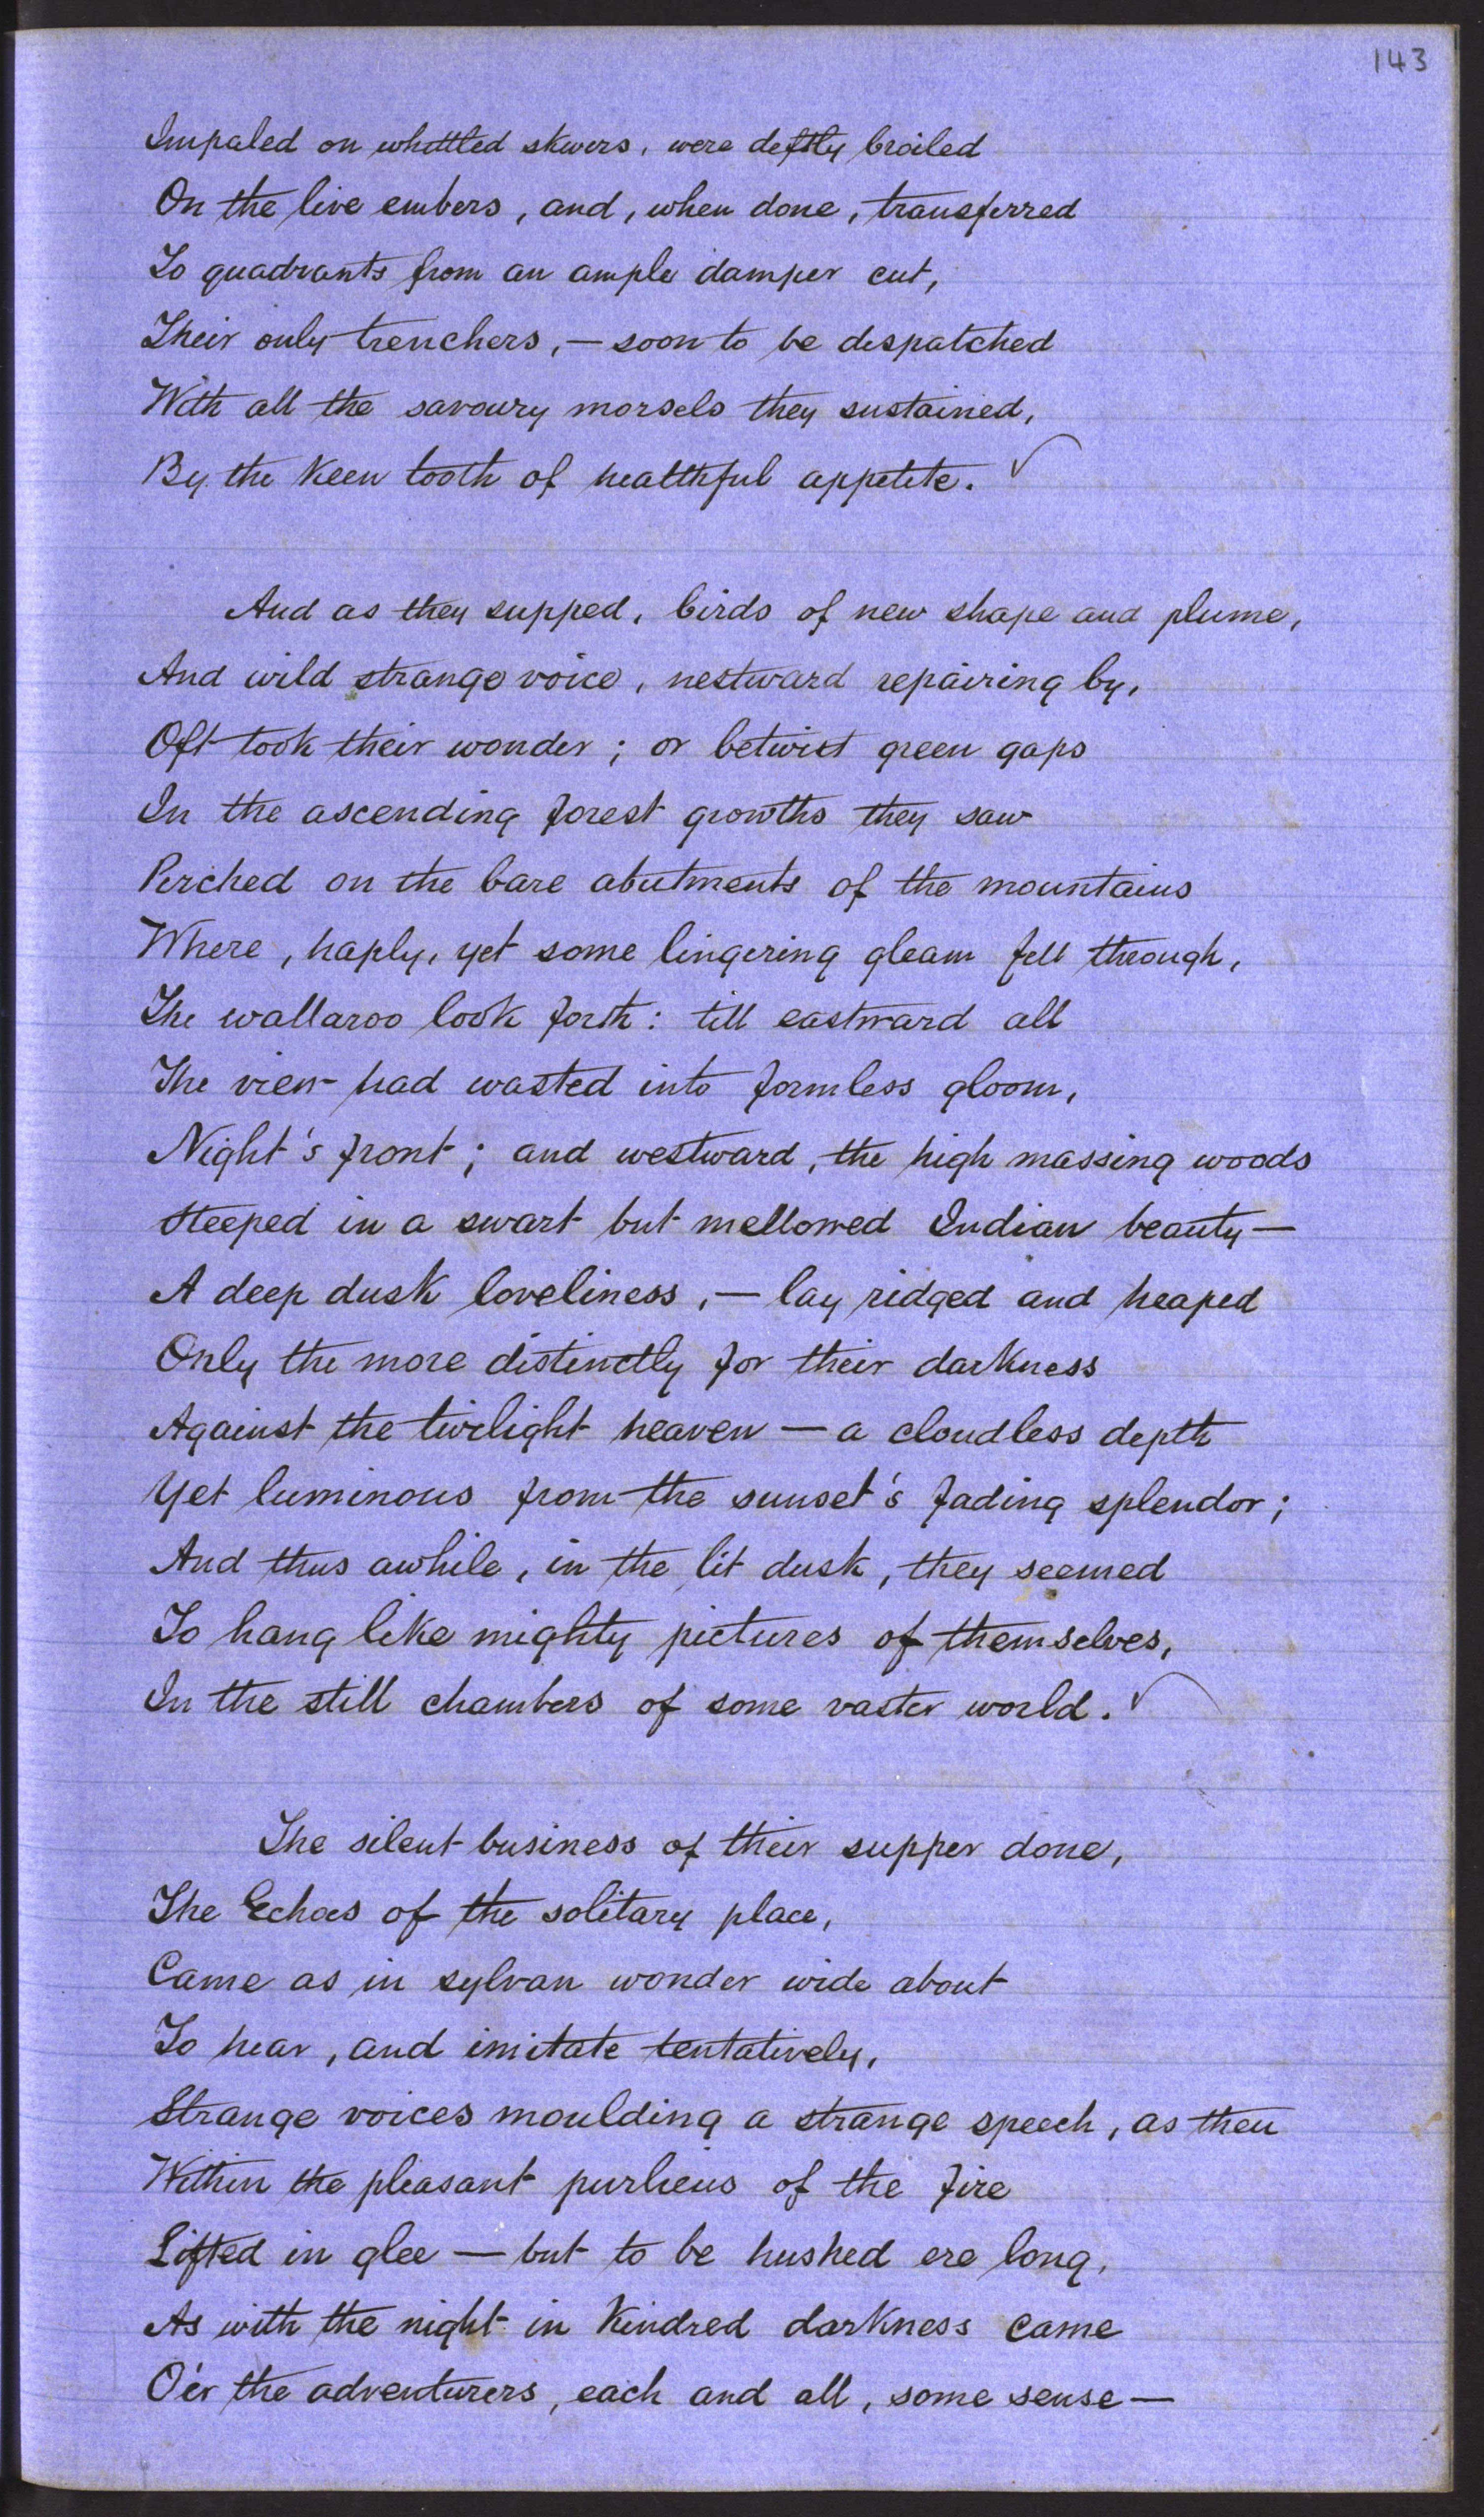 143
Impaled on whittled skewers, were deftly broiled
On the live embers, and, when done, transferred
To quadrants from an ample damper cut,
Their only trenchers, — soon to be despatched
With all the savoury morsels they sustained,
By the keen tooth of healthful appetite.
And as they supped, birds of new shape and plume,
And wild strange voice, nestward repairing by,
Oft took their wonder; or betwixt green gaps
In the ascending forest growths they saw
Perched on the bare abutments of the mountains
Where, haply, yet some lingering gleam fell through,
The wallaroo look forth: till eastward all
The view had wasted into formless gloom,
Night's front; and westward, the high massing woods
Steeped in a swart but mellowed Indian beauty —
A deep dusk loveliness, — lay ridged and heaped
Only the more distinctly for their darkness
Against the twilight heaven — a cloudless depth
Yet luminous from the sunset's fading splendor;
And thus awhile, in the lit dusk, they seemed
To hang like mighty pictures of themselves,
In the still chambers of some vaster world.
The silent business of their supper done,
The Echoes of the solitary place,
Came as in sylvan wonder wide about
To hear, and imitate tentatively,
Strange voices moulding a strange speech, as then
Within the pleasant purlieus of the fire
Lifted in glee — but to be hushed ere long,
As with the night in kindred darkness came
O'er the adventurers, each and all, some sense —